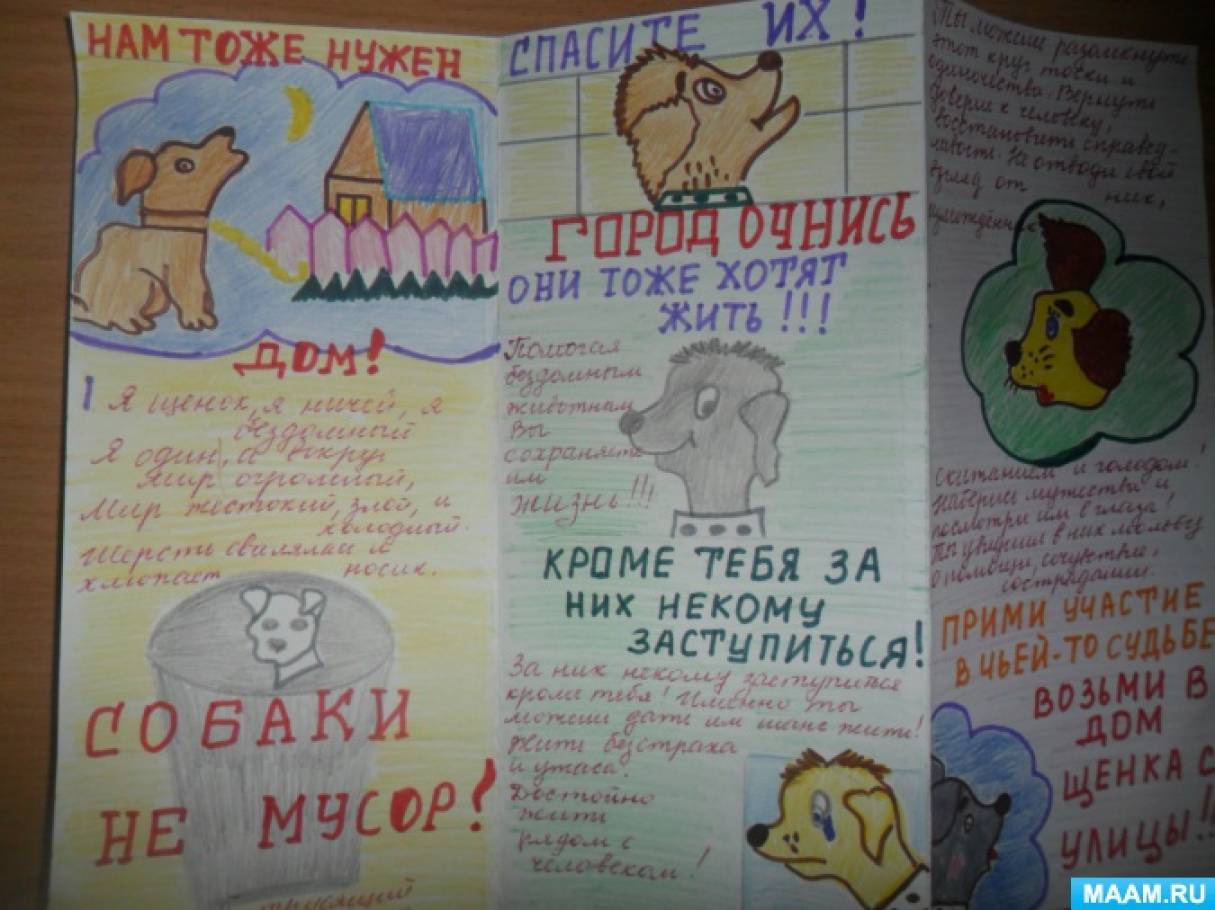 НАМ ТОЖЕ НУЖЕН
ДОМ!
Я щенок, я ничей, я
бездомный
Я один, а вокруг
мир огромный,
Мир жестокий, злой, и
холодный.
Шерсть свалялась и
хлюпает носик.
СОБАКИ
НЕ МУСОР!
СПАСИТЕ ИХ!
ГОРОД ОЧНИСЬ
ОНИ ТОЖЕ ХОТЯТ
ЖИТЬ!!!
Помогая
бездомным
животным
Вы
сохраняете
им
жизнь!!!
КРОМЕ ТЕБЯ ЗА
НИХ НЕКОМУ
ЗАСТУПИТЬСЯ!
За них некому заступится
кроме тебя! Именно ты
можешь дать им шанс жить!
Жить без страха
и ужаса.
Достойно
жить
рядом с
человеком!
Ты можешь разомкнуть
этот круг тоски и
одиночества. Вернуть
доверие к человеку,
восстановить справед-
ливость. Не отводи свой
взгляд от них,
скитанием и голодом!
Наберись мужества и
посмотри им в глаза!
Ты увидишь в них мольбу
о помощи, сочувствии,
сострадании.
ПРИМИ УЧАСТИЕ
В ЧЬЕЙ-ТО СУДЬБЕ
ВОЗЬМИ В
ДОМ
ЩЕНКА С
УЛИЦЫ!!
MAAM.RU